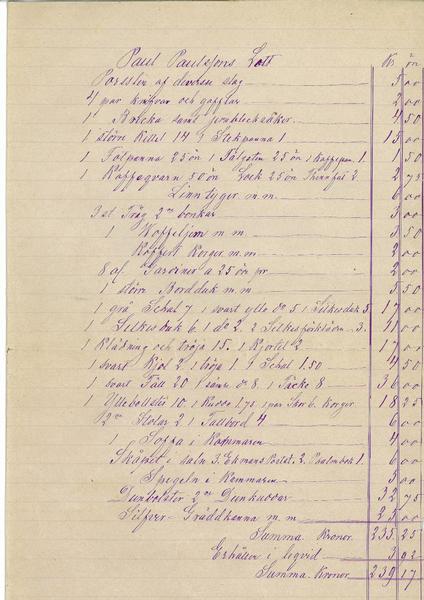 Paul Paulssons Lott Kr ör
Porslin af diverse slag 5 00
4 par knifvar och gafflar 2 00
1 Bricka samt jernblecksaker 4 50
1 större Kittel 14 1 Stekpanna 1 15 00
1 Tolpanna 25 ön 1 Talgaton 25 ön 1 Kaffepan 1. 1 50
1 Kaffeqvarn 50 ön Lock 25 ön Thennfat 2. 2 75
Linntyger m.m. 6 00
3 st Tråg 2ne bonkar 3 00
1 m m 3 50
Koffert Korger m.m 2 00
8 af a 25 ön pr 2 00
1 större Bordduk m m 5 50
1 grå Schal 7 1 svart ylle do 5 1 Silkesduk 5 17 00
1 Silkesduk 6. 1 do 2. 2 Silkesförkläden 3. 11 00
1 Klädning och tröja 15. 1 Kjortel 2 17 00
1 svart Kjol 2 1 tröja 1. 1 Schal 1.50 4 50
1 svart Fäll 20 1 samre do 8 1 Täcke 8 36 00
1 Yllebolster 10 1 Kudde 1.75 1 par Skor 6. Korger 18 25
2ne Stolar 2 1 Fallbord 4 6 00
1 Soffa i Kammaren 4 00
Skåpet i saln 3. Ekmans Postst. 2. Psalmbok 1. 6 00
Spegeln i Kammaren 5 00
Dunbolster 2ne Dunkuddar 32 75
Silfver- Gräddkanna m m 25 00
Summa Kronor 235 25
Erhåller i legvid 3 92
Summa Kronor 239 17